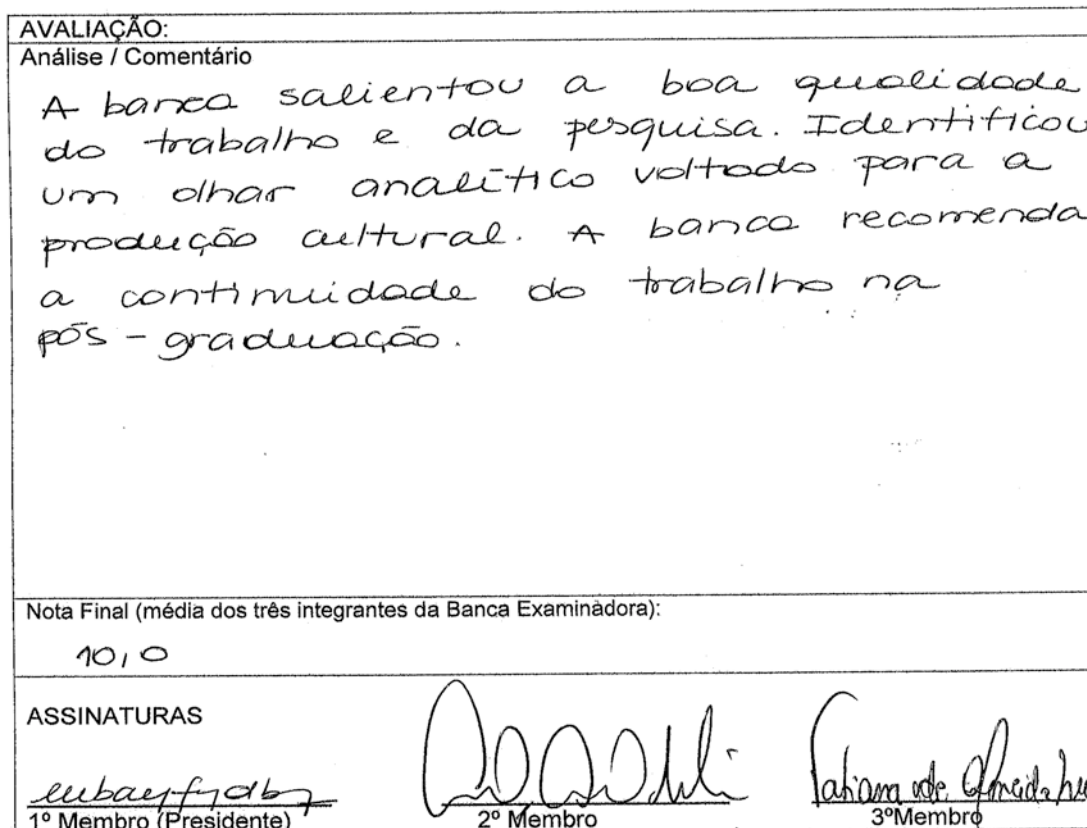 AVALIAÇÃO:
Análise / Comentário
A banca salientou a boa qualidade
do trabalho e da pesquisa. Identificou
um olhar analítico voltado para a
produção cultural. A banca recomenda
a continuidade do trabalho na
pós-graduação.
Nota Final (média dos três integrantes da Banca Examinadora):
10,0
ASSINATURAS
Tatiana de Almeida
1º Membro (Presidente) 2º Membro 3ºMembro